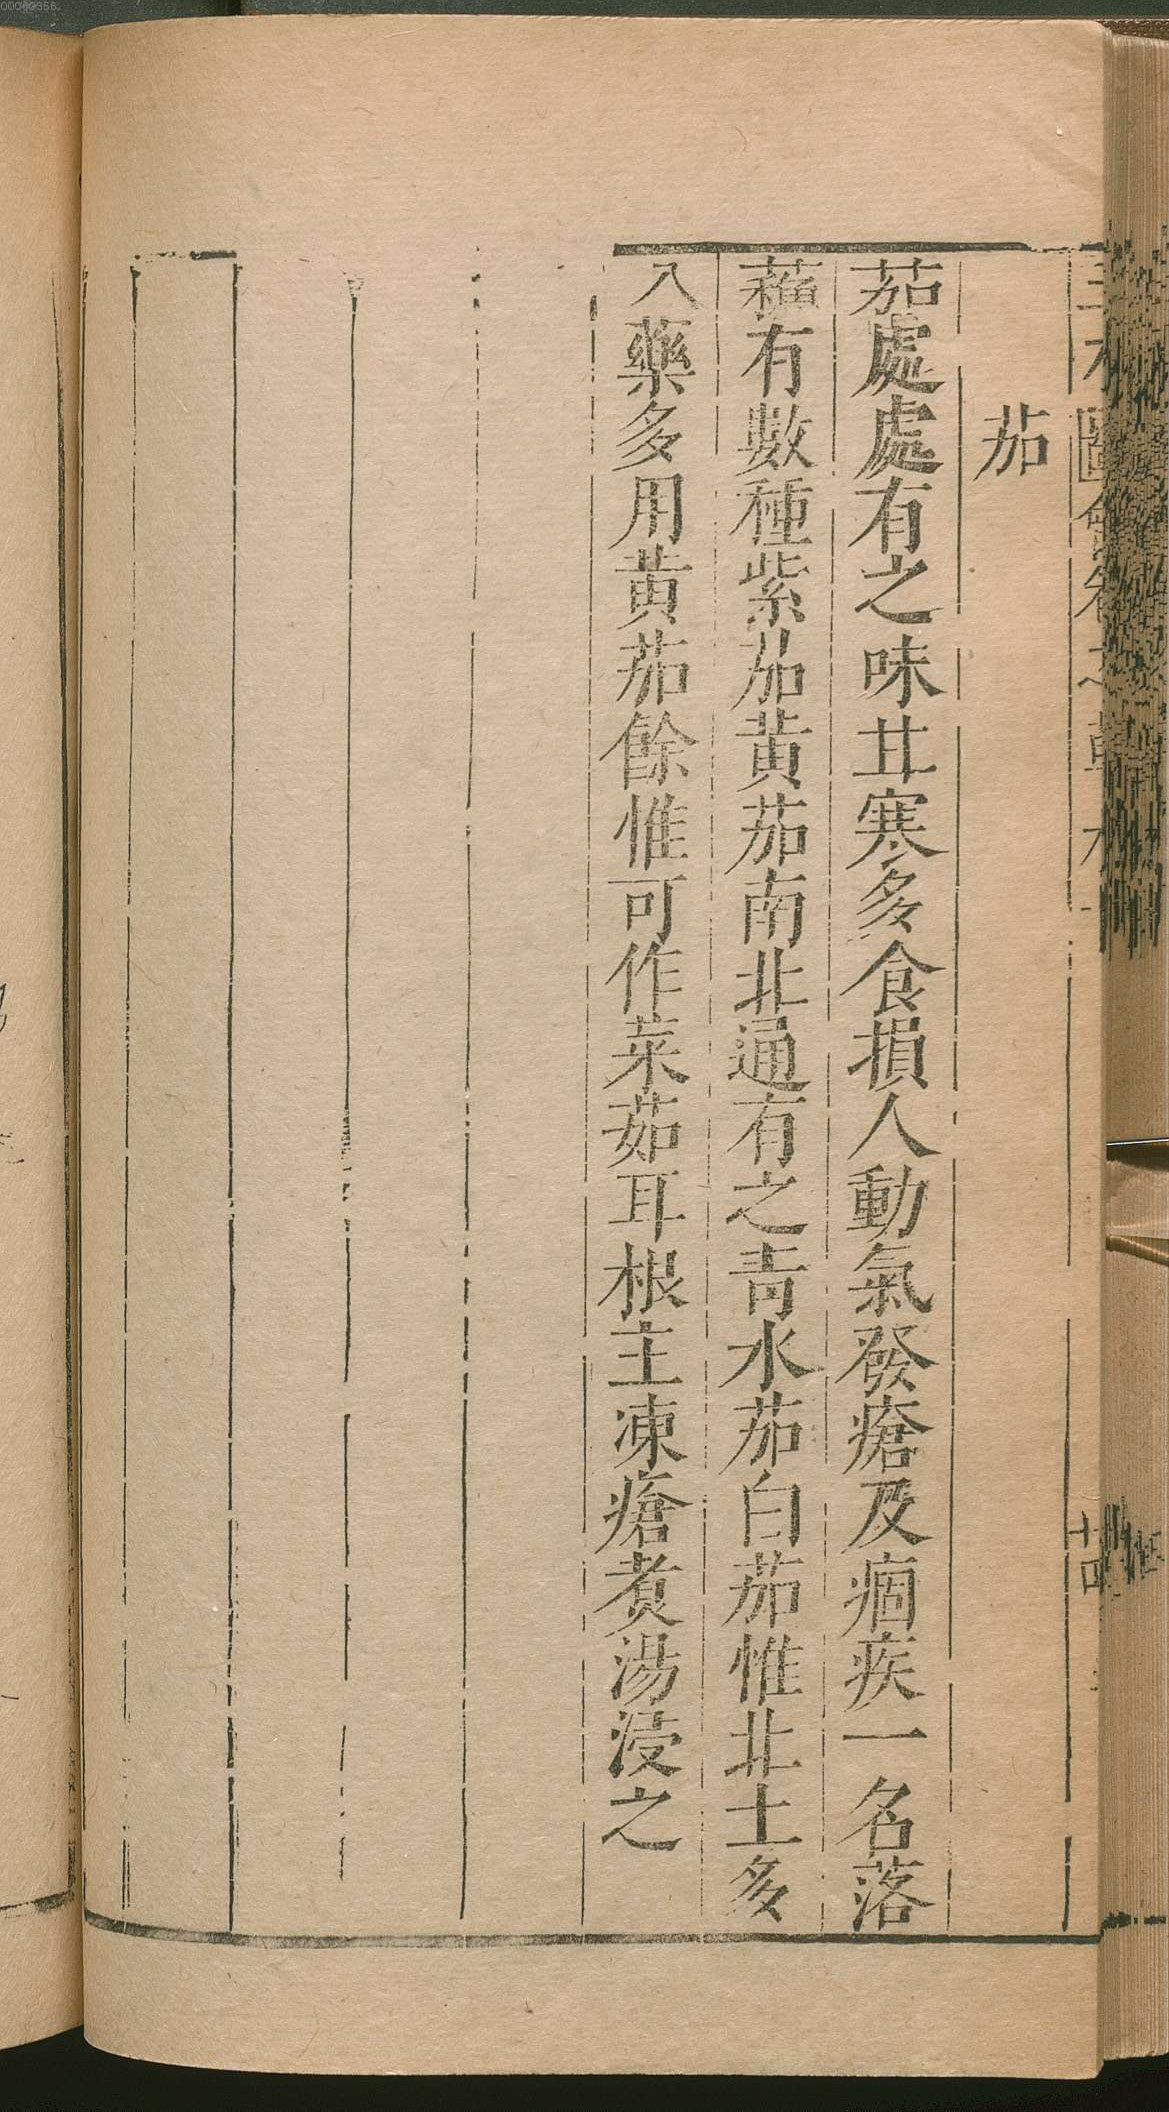 00069358
三才圖會卷之草木十 十四
茄
茄處處有之味甘寒多食損人動氣發瘡及痼疾一名落
蘓有數種紫茄黃茄南北通有之靑水茄白茄惟北土多
入藥多用黃茄餘惟可作菜茹耳根主凍瘡煮湯浸之